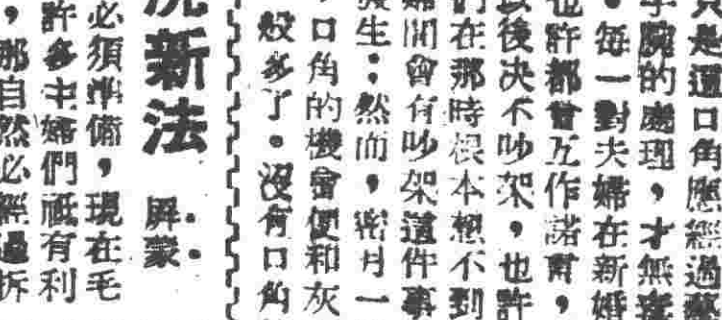 是這口角應經過
腕的處理，才無
。每一對夫婦在新婚
也許都會互作諾言，
以後决不吵架，也許
們在那時根本想不到
婦間會有吵架這件事
發生；然而，密月一
口角的機會便和灰
般多了。沒有口角
洗新法
屏蒙
必須準備，現在毛
許多主婦們祇有利
那自然必經過拆